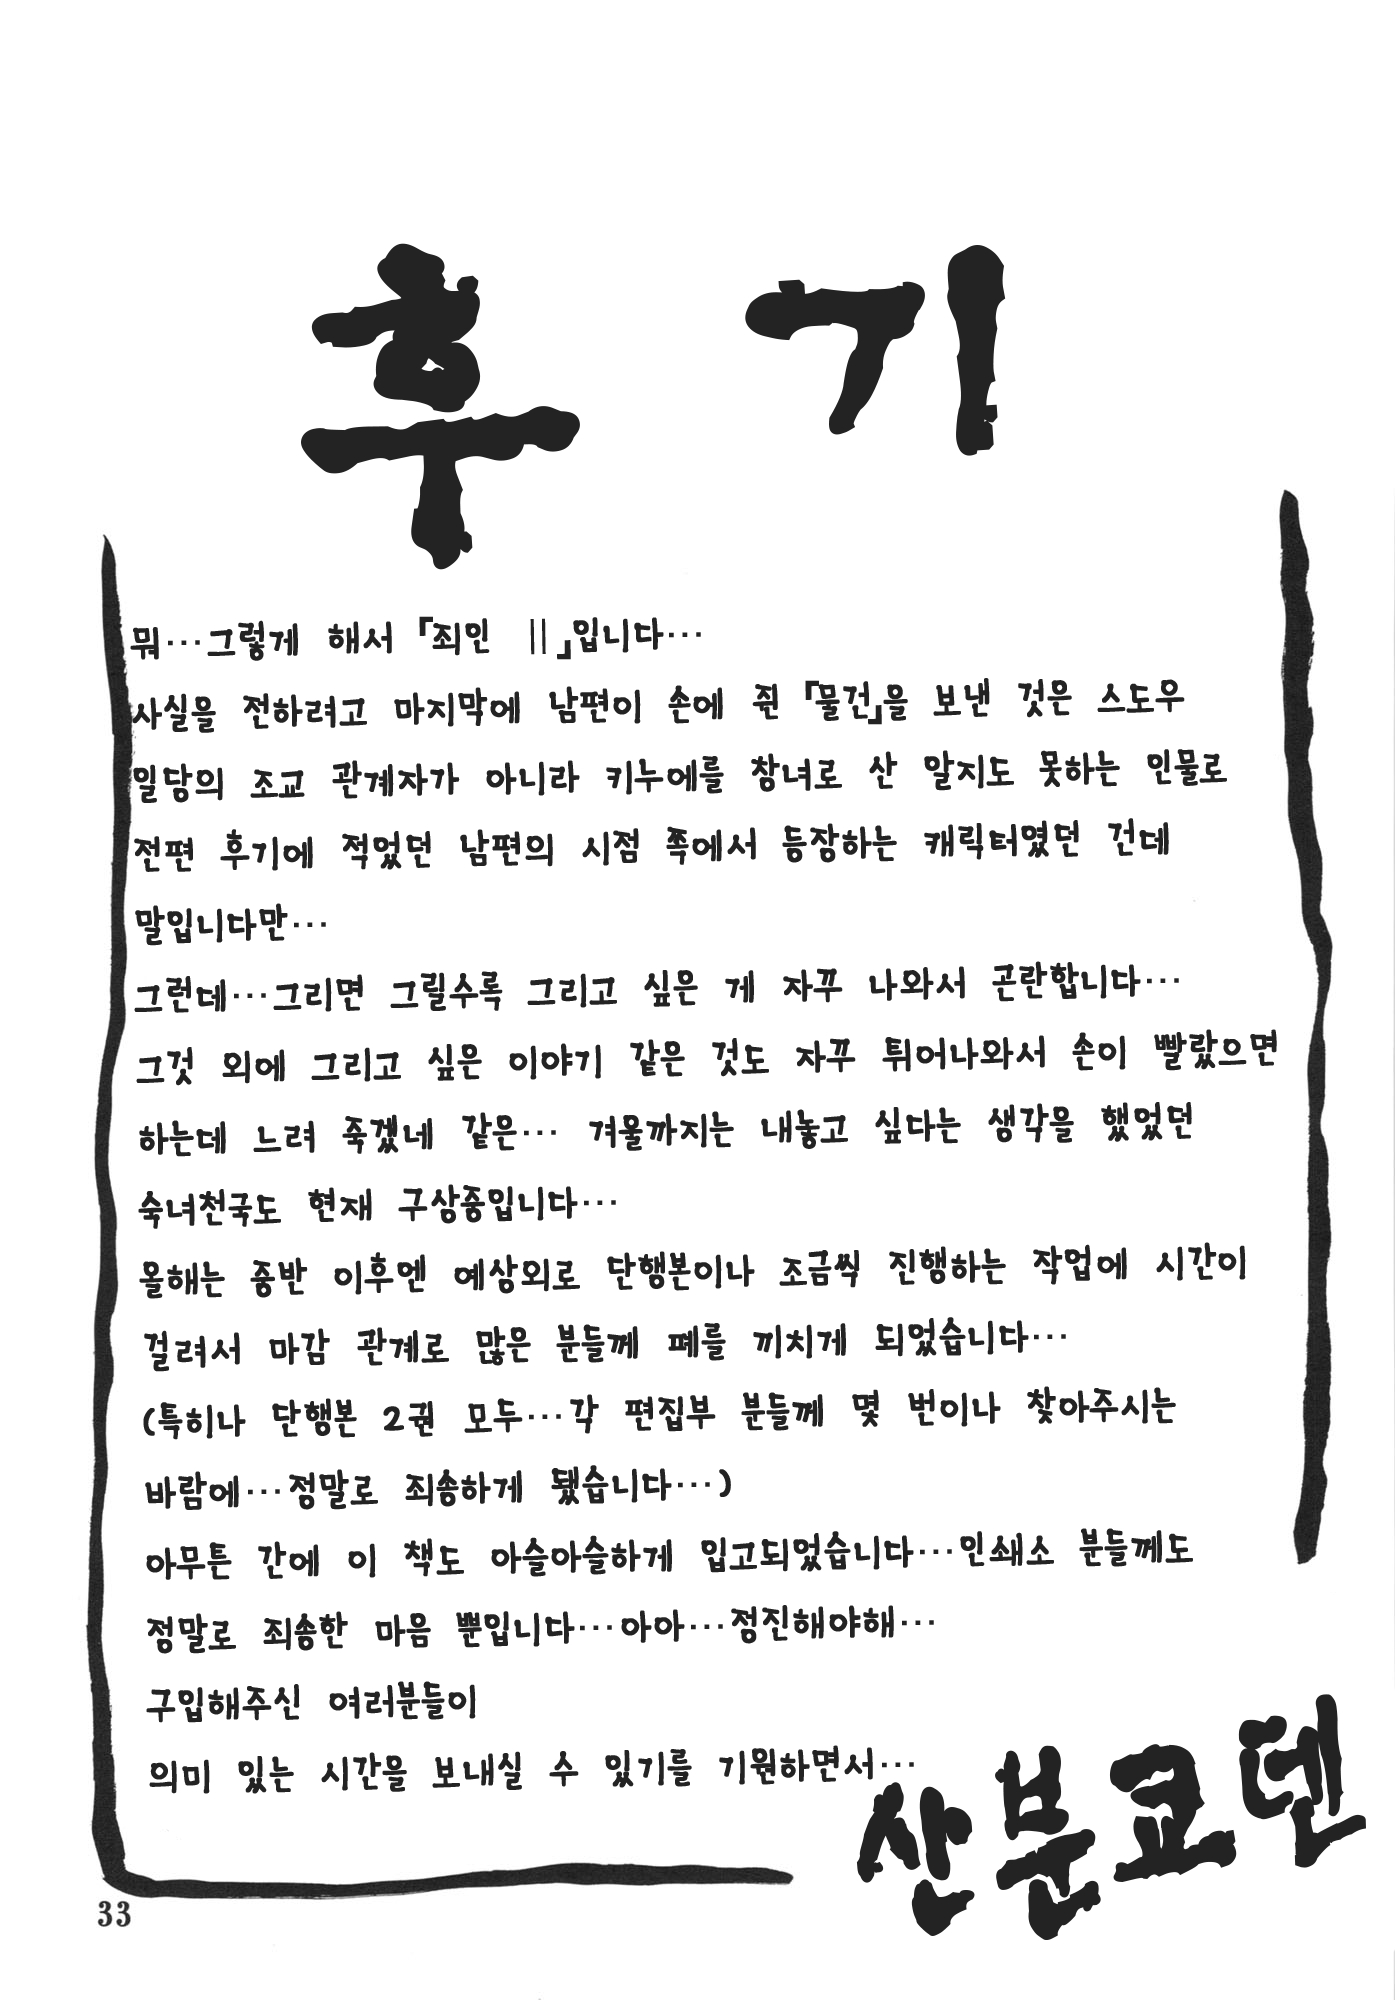 후 기
뭐…그렇게 해서 「죄인 Ⅱ」입니다…
사실을 전하려고 마지막에 남편이 손에 쥔 「물건」을 보낸 것은 스도우
일당의 조교 관계자가 아니라 키누에를 창녀로 산 알지도 못하는 인물로
전편 후기에 적었던 남편의 시점 쪽에서 등장하는 캐릭터였던 건데
말입니다만…
그런데…그리면 그릴수록 그리고 싶은 게 자꾸 나와서 곤란합니다…
그것 외에 그리고 싶은 이야기 같은 것도 자꾸 튀어나와서 손이 빨랐으면
하는데 느려 죽겠네 같은… 겨울까지는 내놓고 싶다는 생각을 했었던
숙녀천국도 현재 구상중입니다…
올해는 중반 이후엔 예상외로 단행본이나 조금씩 진행하는 작업에 시간이
걸려서 마감 관계로 많은 분들께 폐를 끼치게 되었습니다…
(특히나 단행본 2권 모두…각 편집부 분들께 몇 번이나 찾아주시는
바람에…정말로 죄송하게 됐습니다…)
아무튼 간에 이 책도 아슬아슬하게 입고되었습니다…인쇄소 분들께도
정말로 죄송한 마음 뿐입니다…아아…정진해야해…
구입해주신 여러분들이
의미 있는 시간을 보내실 수 있기를 기원하면서…
산분쿄덴
33